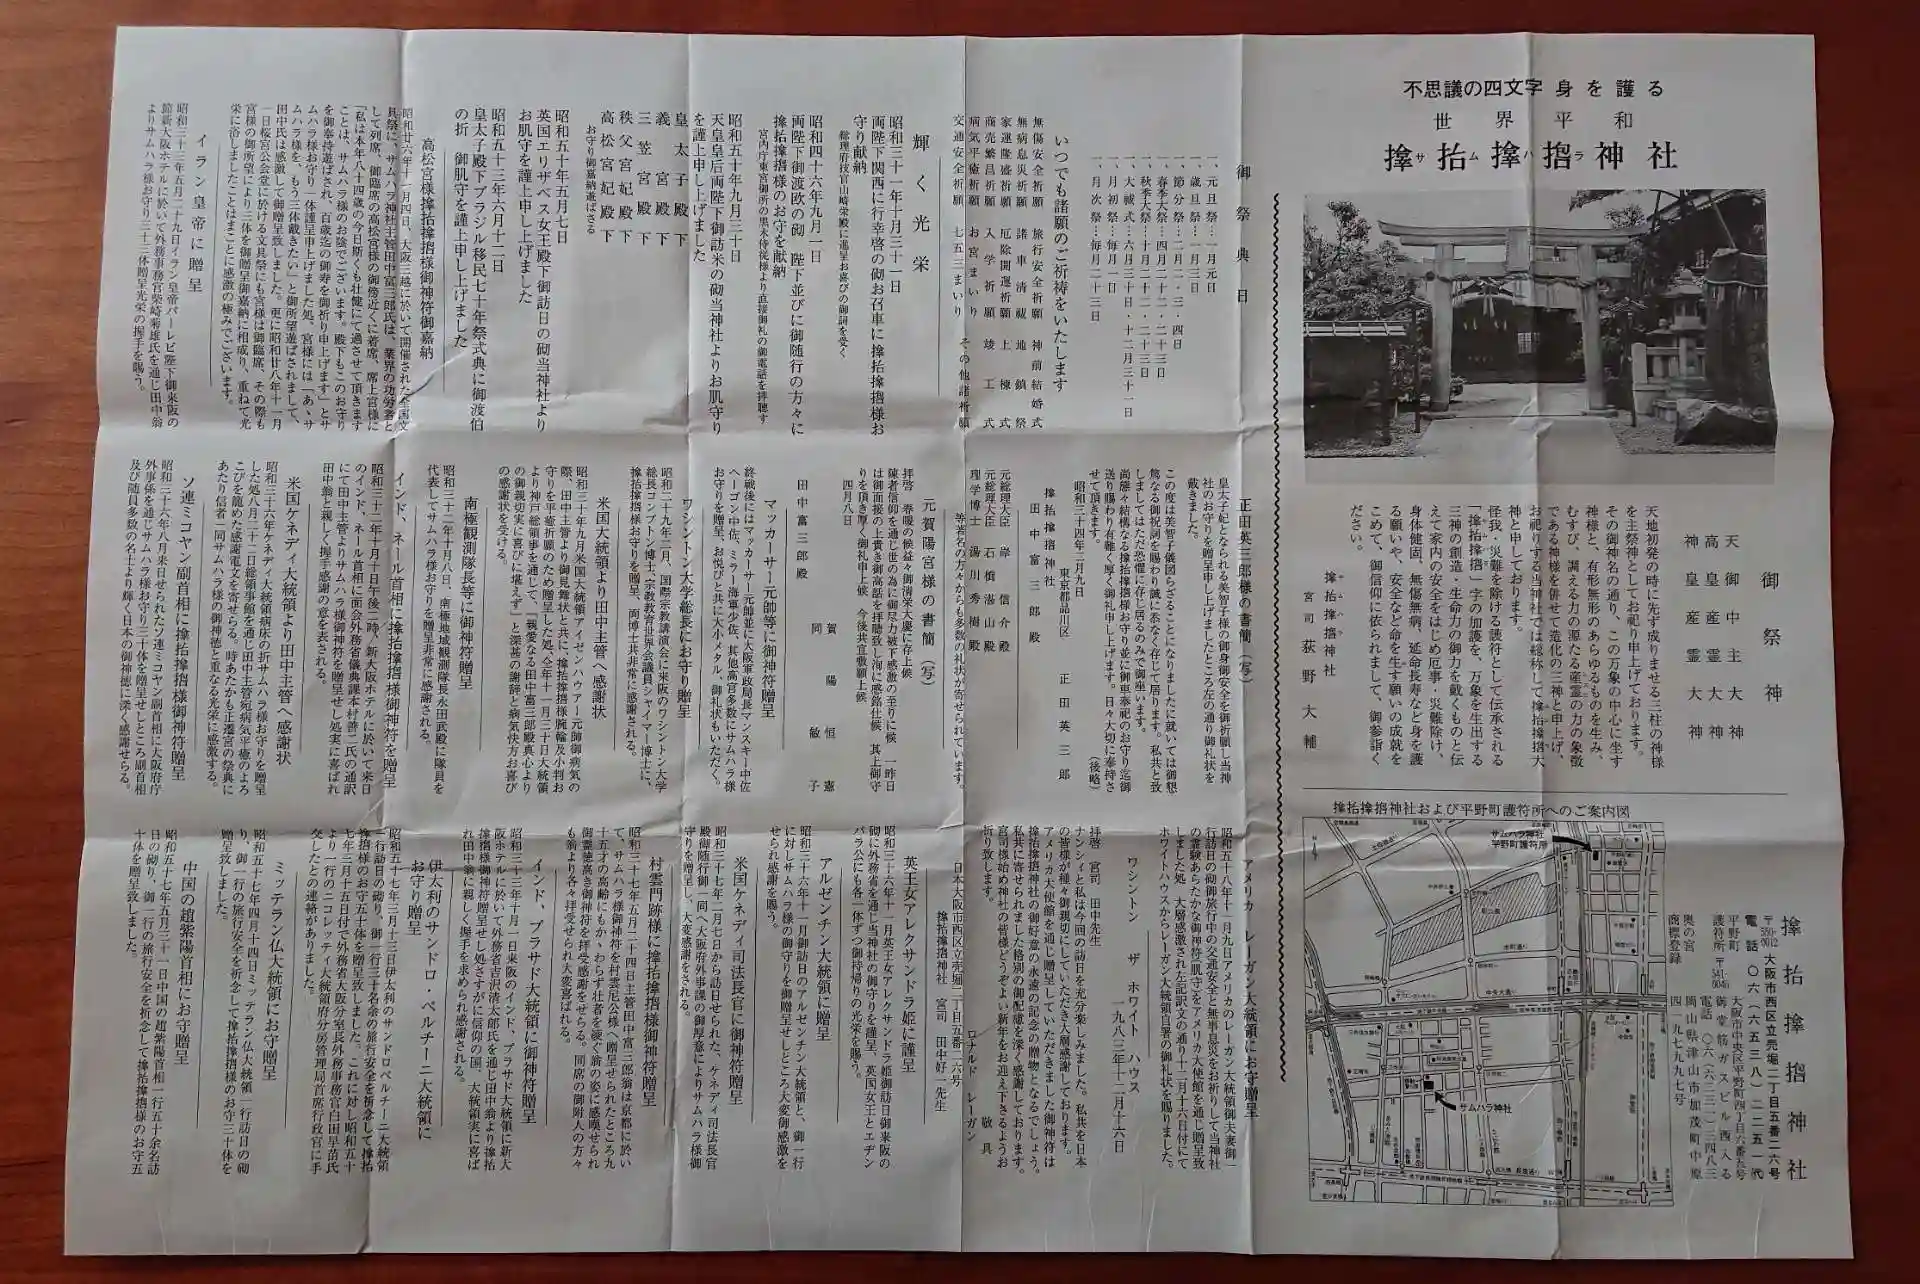 不思議の四文字 身を護る
世界平和
撁抬撁𢫛神社
御祭神
天御中主大神
高皇産霊大神
神皇産霊大神
天地初発の時に先ず成りませる三柱の神様
を主祭神としてお祀り申上げております。
その御神名の通り、この万象の中心に坐す
神様と、有形無形のあらゆるものを生み、
むすび、調える力の源たる産霊の力の象徴
である神様を併せて造化の三神と申上げ、
お祀りする当神社では総称して撁抬撁𢫛大
神と申しております。
怪我・災難を除ける護符として伝承される
「撁抬撁𢫛」字の加護を、万象を生出する
三神の創造・生命力の御力を戴くものと伝
えて家内の安全をはじめ厄事・災難除け、
身体健固、無傷無病、延命長寿など身を護
る願いや、安全など命を生す願いの成就を
こめて、御信仰に依られまして、御参詣く
ださい。
撁抬撁𢫛神社
宮司 荻野大輔
撁抬撁𢫛神社および平野町護符所へのご案内図
サムハラ神社
平野町護符所
サムハラ神社
撁抬撁𢫛神社
〒550-0012 大阪市西区立売堀二丁目五番二六号
電話〇六(六五三八)二二五一代
平野町 大阪市中央区平野町四丁目六番九号
護符所 〒541-0046 御堂筋ガスビル西入る
電話 〇六(六二三一)三四八三
奥の宮 岡山県津山市加茂町中原
商標登録 四一九七九九七号
御祭典日
一、元旦祭・・・一月元日
一、歳旦祭・・・一月三日
一、節分祭・・・二月二・三・四日
一、春季大祭・・・四月二十二・二十三日
一、秋季大祭・・・十月二十二・二十三日
一、大祓式・・・六月三十日・十二月三十一日
一、月初祭・・・毎月一日
一、月次祭・・・毎月二十三日
いつでも諸願のご祈祷をいたします
無傷安全祈願 旅行安全祈願 神前結婚式
無病息災祈願 諸車清祓 地鎮祭
家運隆盛祈願 厄除開運祈願 上棟式
商売繁昌祈願 入学祈願 竣工式
病気平癒祈願 お宮まいり その他諸祈願
交通安全祈願 七五三まいり
輝く光栄
昭和三十一年十月三十一日
両陛下関西に行幸啓の砌お召車に撁抬撁𢫛様お
守り献納
昭和四十六年九月一日
両陛下御渡欧の砌 陛下並びに御随行の方々に
撁抬撁𢫛様のお守を献納
宮内庁東宮御所の黒木侍従様より直接御礼の御電話を拝聴す
昭和五十年九月三十日
天皇皇后両陛下御訪米の砌当神社よりお肌守り
を謹上申し上げました
皇太子殿下
義宮殿下
三笠宮殿下
秩父宮妃殿下
高松宮妃殿下
お守り御嘉納遊ばさる
昭和五十年五月七日
英国エリザベス女王殿下御訪日の砌当神社より
お肌守を謹上申し上げました
昭和五十三年六月十二日
皇太子殿下ブラジル移民七十年祭式典に御渡伯
の折 御肌守を謹上申し上げました
高松宮様撁抬撁𢫛様御神符御嘉納
昭和廿六年十一月四日、大阪三越に於いて開催された全国文
具祭に、サムハラ神社主管田中富三郎氏は、業界の功労者と
して列席、御臨席の高松宮様の御傍近くに着席、席上宮様に
「私は本年八十四歳の今日斯くも壮健にて過させて頂きます
ことは、サムハラ様のお陰でございます。殿下もこのお守り
を御奉持遊ばされ、百歳迄の御寿を御祈り申上げます」とサ
ムハラ様お守り一体謹呈申上げました処、宮様には「あゝサ
ムハラ様を、もう三体戴きたい」と御所望遊ばされまして、
田中氏は感激して御贈呈致しました。更に昭和廿八年十一月
一日桜宮公会堂に於ける文具祭にも宮様は御臨席、その際も
宮様の御所望により三体を御贈呈御嘉納に相成り、重ねて光
栄に浴しましたことはまことに感激の極みでございます。
イラン皇帝に贈呈
昭和三十三年五月二十九日イラン皇帝パーレビ陛下御来阪の
節新大阪ホテルに於いて外務事務官柴崎菊雄氏を通じ田中翁
よりサムハラ様お守り三十三体贈呈光栄の握手を賜う。
正田英三郎様の書簡(写)
皇太子妃となられる美智子様の御身御安全を御祈願し当神
社のお守りを贈呈申し上げましたところ左の通り御礼状を
戴きました。
この度は美智子儀図らざることになりましたに就いては御懇
篤なる御祝詞を賜わり誠に忝なく存じて居ります。私共と致
しましてはただ恐懼に存じ居るのみで御座います。
尚態々結構なる撁抬撁𢫛様お守り並に御車奉祀のお守り迄御
送り賜わり有難く厚く御礼申し上げます。日々大切に奉持さ
せて頂きます。 (後略)
昭和三十四年二月九日
東京都品川区 正田英三郎
撁抬撁𢫛神社
田中富三郎殿
元総理大臣 岸信介殿
元総理大臣 石橋湛山殿
理学博士 湯川秀樹殿
等著名の方々からも多数の礼状が寄せられています。
元賀陽宮様の書簡(写)
拝啓 春暖の候益々御清栄大慶に存上候 一昨日
四月八日
賀陽恒憲
同 敏子
田中富三郎殿
マッカーサー元帥等に御神符贈呈
終戦後にはマッカーサー元帥並に大阪軍政局長マンスキー中佐
ヘーゴン中佐、ミラー海軍少佐、其他高官多数にサムハラ様
お守りを贈呈、お悦びと共に大小メタル、御礼状もいただく。
ワシントン大学総長にお守り贈呈
昭和二十九年三月、国際宗教講演会に来阪のワシントン大学
総長コンプトン博士、宗教教育世界会議員シャイマー博士に、
撁抬撁𢫛様お守りを贈呈、両博士共非常に感謝される。
米国大統領より田中主管へ感謝状
昭和三十年九月米国大統領アイゼンハウアー元帥御病気の
際、田中主管より御見舞状と共に、撁抬撁𢫛様腕輪及小判お
守りを平癒祈願のため贈呈した処、全年十一月三十日大統領
より神戸総領事を通じて、「親愛なる田中富三郎殿真心より
の御親切実に喜びに堪えず」と深甚の謝辞と病気快方お喜び
の感謝状を受ける。
南極観測隊長等に御神符贈呈
昭和三十二年十月八日、南極地域観測隊長永田武殿に隊員を
代表してサムハラ様お守りを贈呈非常に感謝される。
インド、ネール首相に撁抬撁𢫛様御神符を贈呈
昭和三十二年十月十日午後二時、新大阪ホテルに於いて来日
のインド、ネール首相に面会外務省儀典課本村善二氏の通訳
にて田中主管よりサムハラ様御神符を贈呈せし処実に喜ばれ
田中翁と親しく握手感謝の意を表される。
米国ケネディ大統領より田中主管へ感謝状
昭和三十六年ケネディ大統領病床の折サムハラ様お守りを贈呈
した処八月二十二日総領事館を通じ田中主管宛病気平癒のよろ
こびを籠めた感謝電文を寄せらる。時あたかも正遷宮の祭典に
あたり信者一同サムハラ様の御神徳と重なる光栄に感激する。
ソ連ミコヤン副首相に撁抬撁𢫛様御神符贈呈
昭和三十六年八月来日せられたソ連ミコヤン副首相に大阪府庁
外事係を通じサムハラ様お守り三十体を贈呈せしところ副首相
及び随員多数の名士より輝く日本の御神徳に深く感謝せらる。
アメリカ レーガン大統領にお守贈呈
昭和五十八年十一月九日アメリカのレーガン大統領御夫妻御一
行訪日の砌御旅行中の交通安全と無事息災をお祈りして当神社
の霊験あらたかな御神符(肌守)をアメリカ大使館を通じ贈呈致
しました処 大層感激され左記訳文の通り十二月十六日付にて
ホワイトハウスからレーガン大統領自署の御礼状を賜りました。
ワシントン ザ ホワイト ハウス
一九八三年十二月十六日
拝啓 宮司 田中先生
ナンシイと私は今回の訪日を充分楽しみました。私共を日本
の皆様が種々御親切にしていただき大層感謝しております。
アメリカ大使館を通じ贈呈していただきました御神符は
撁抬撁𢫛神社の御好意の永遠の記念の贈物となるでしょう。
私共に寄せられました格別の御配慮を深く感謝しております。
宮司様始め神社の皆様どうぞよい新年をお迎え下さるようお
祈り致します。 敬具
ロナルド レーガン
日本大阪市西区立売堀二丁目五番二六号
撁抬撁𢫛神社 宮司 田中好一先生
英王女アレクサンドラ姫に謹呈
昭和三十六年十一月英王女アレクサンドラ姫御訪日御来阪の
砌に外務省を通じ当神社の御守りを謹呈、英国女王とエヂン
バラ公にも各一体ずつ御持帰りの光栄を賜う。
アルゼンチン大統領に贈呈
昭和三十六年十二月御訪日のアルゼンチン大統領と、御一行
に対しサムハラ様の御守りを御贈呈せしところ大変御感激を
せられ感謝を賜う。
米国ケネディ司法長官に御神符贈呈
昭和三十七年二月七日から訪日せられた、ケネディ司法長官
殿御随行御一同へ大阪府外事課の御厚意によりサムハラ様御
守りを贈呈し、大変感謝をされる。
村雲門跡様に撁抬撁𢫛様御神符贈呈
昭和三十七年五月二十四日主管田中富三郎翁は京都に於い
て、サムハラ様御神符を村雲尼公様へ贈呈せられたところ九
十五才の高齢にもかゝわらず壮者を凌ぐ翁の姿に感嘆せられ
御霊徳高き御神符を拝受感謝をせらる。同席の御附人の方々
も翁より各々拝受せられ大変喜ばれる。
インド、プラサド大統領に御神符贈呈
昭和三十三年十月一日来阪のインド、プラサド大統領に新大
阪ホテルに於いて外務省吉沢清太郎氏を通じ田中翁より撁抬
撁𢫛様御神符贈呈せし処さすがに信仰の国、大統領実に喜ば
れ田中翁に親しく握手を求められ感謝される。
伊太利のサンドロ・ペルチーニ大統領に
お守り贈呈
昭和五十七年三月十三日伊太利のサンドロペルチーニ大統領
一行訪日の砌り、御一行三十名余の旅行安全を祈念して撁抬
撁𢫛様のお守五十体を贈呈致しました。これに対し昭和五十
七年三月十五日付で外務省大阪分室長外務事務官白田早苗氏
より一行のニコレッティ大統領府分房管理局首席行政官に手
交したとの連絡がありました。
ミッテラン仏大統領にお守贈呈
昭和五十七年四月十四日ミッテラン仏大統領一行訪日の砌
り、御一行の旅行安全を祈念して撁抬撁𢫛様のお守三十体を
贈呈致しました。
中国の趙紫陽首相にお守贈呈
昭和五十七年五月三十一日中国の趙紫陽首相一行五十余名訪
日の砌り、御一行の旅行安全を祈念して撁抬撁𢫛様のお守五
十体を贈呈致しました。